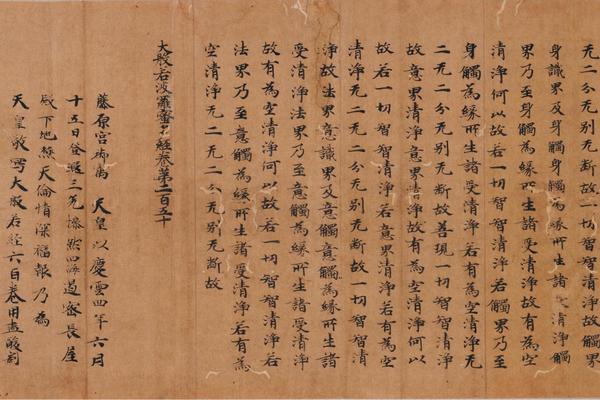 无二分无別无断故一切智智清淨故觸界
身識界及身觸身觸為緣所生諸受清淨觸
界乃至身觸為緣所生諸受清淨故有為空
清淨何以故若一切智智清淨若觸界乃至
身觸為緣所生諸受清淨若有為空清淨无
二无二分无別无断故善現一切智智清淨
故意界清淨意界清淨故有為空清淨何以
故若一切智智清淨若意界清淨若有為空
清淨无二无二分无別无断故一切智智清
淨故法界意識界及意觸意觸為緣所生諸
受清淨法界乃至意觸為緣所生諸受清淨
故有為空清淨何以故若一切智智清淨若
法界乃至意觸為緣所生諸受清淨若有為
空清淨无二无二分无別无断故
大般若波羅蜜多經卷第二百五十
藤原宮御寓 天皇以慶雲四年六月
十五日登遐三光慘然四海遏密長屋
殿下地極天倫情深福報乃為
天皇敬寫大般若經六百卷用盡酸割